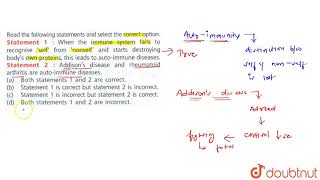 Read the following statements and select the correct option.
Statement 1 : When the immune system fails to
recognise 'self' from 'nonself' and starts destroying
body's own proteins, this leads to auto-immune diseases.
Statement 2 : Addison's disease and rheumatoid
arthritis are auto-immune diseases.
(a) Both statements 1 and 2 are correct.
(b) Statement 1 is correct but statement 2 is correct.
(c) Statement 1 is incorrect but statement 2 is correct.
(d) Both statements 1 and 2 are incorrect.
Auto-immunity
distinction b/w
self & non-self
is lost
Addison's disease
Adrenal
doubtnut